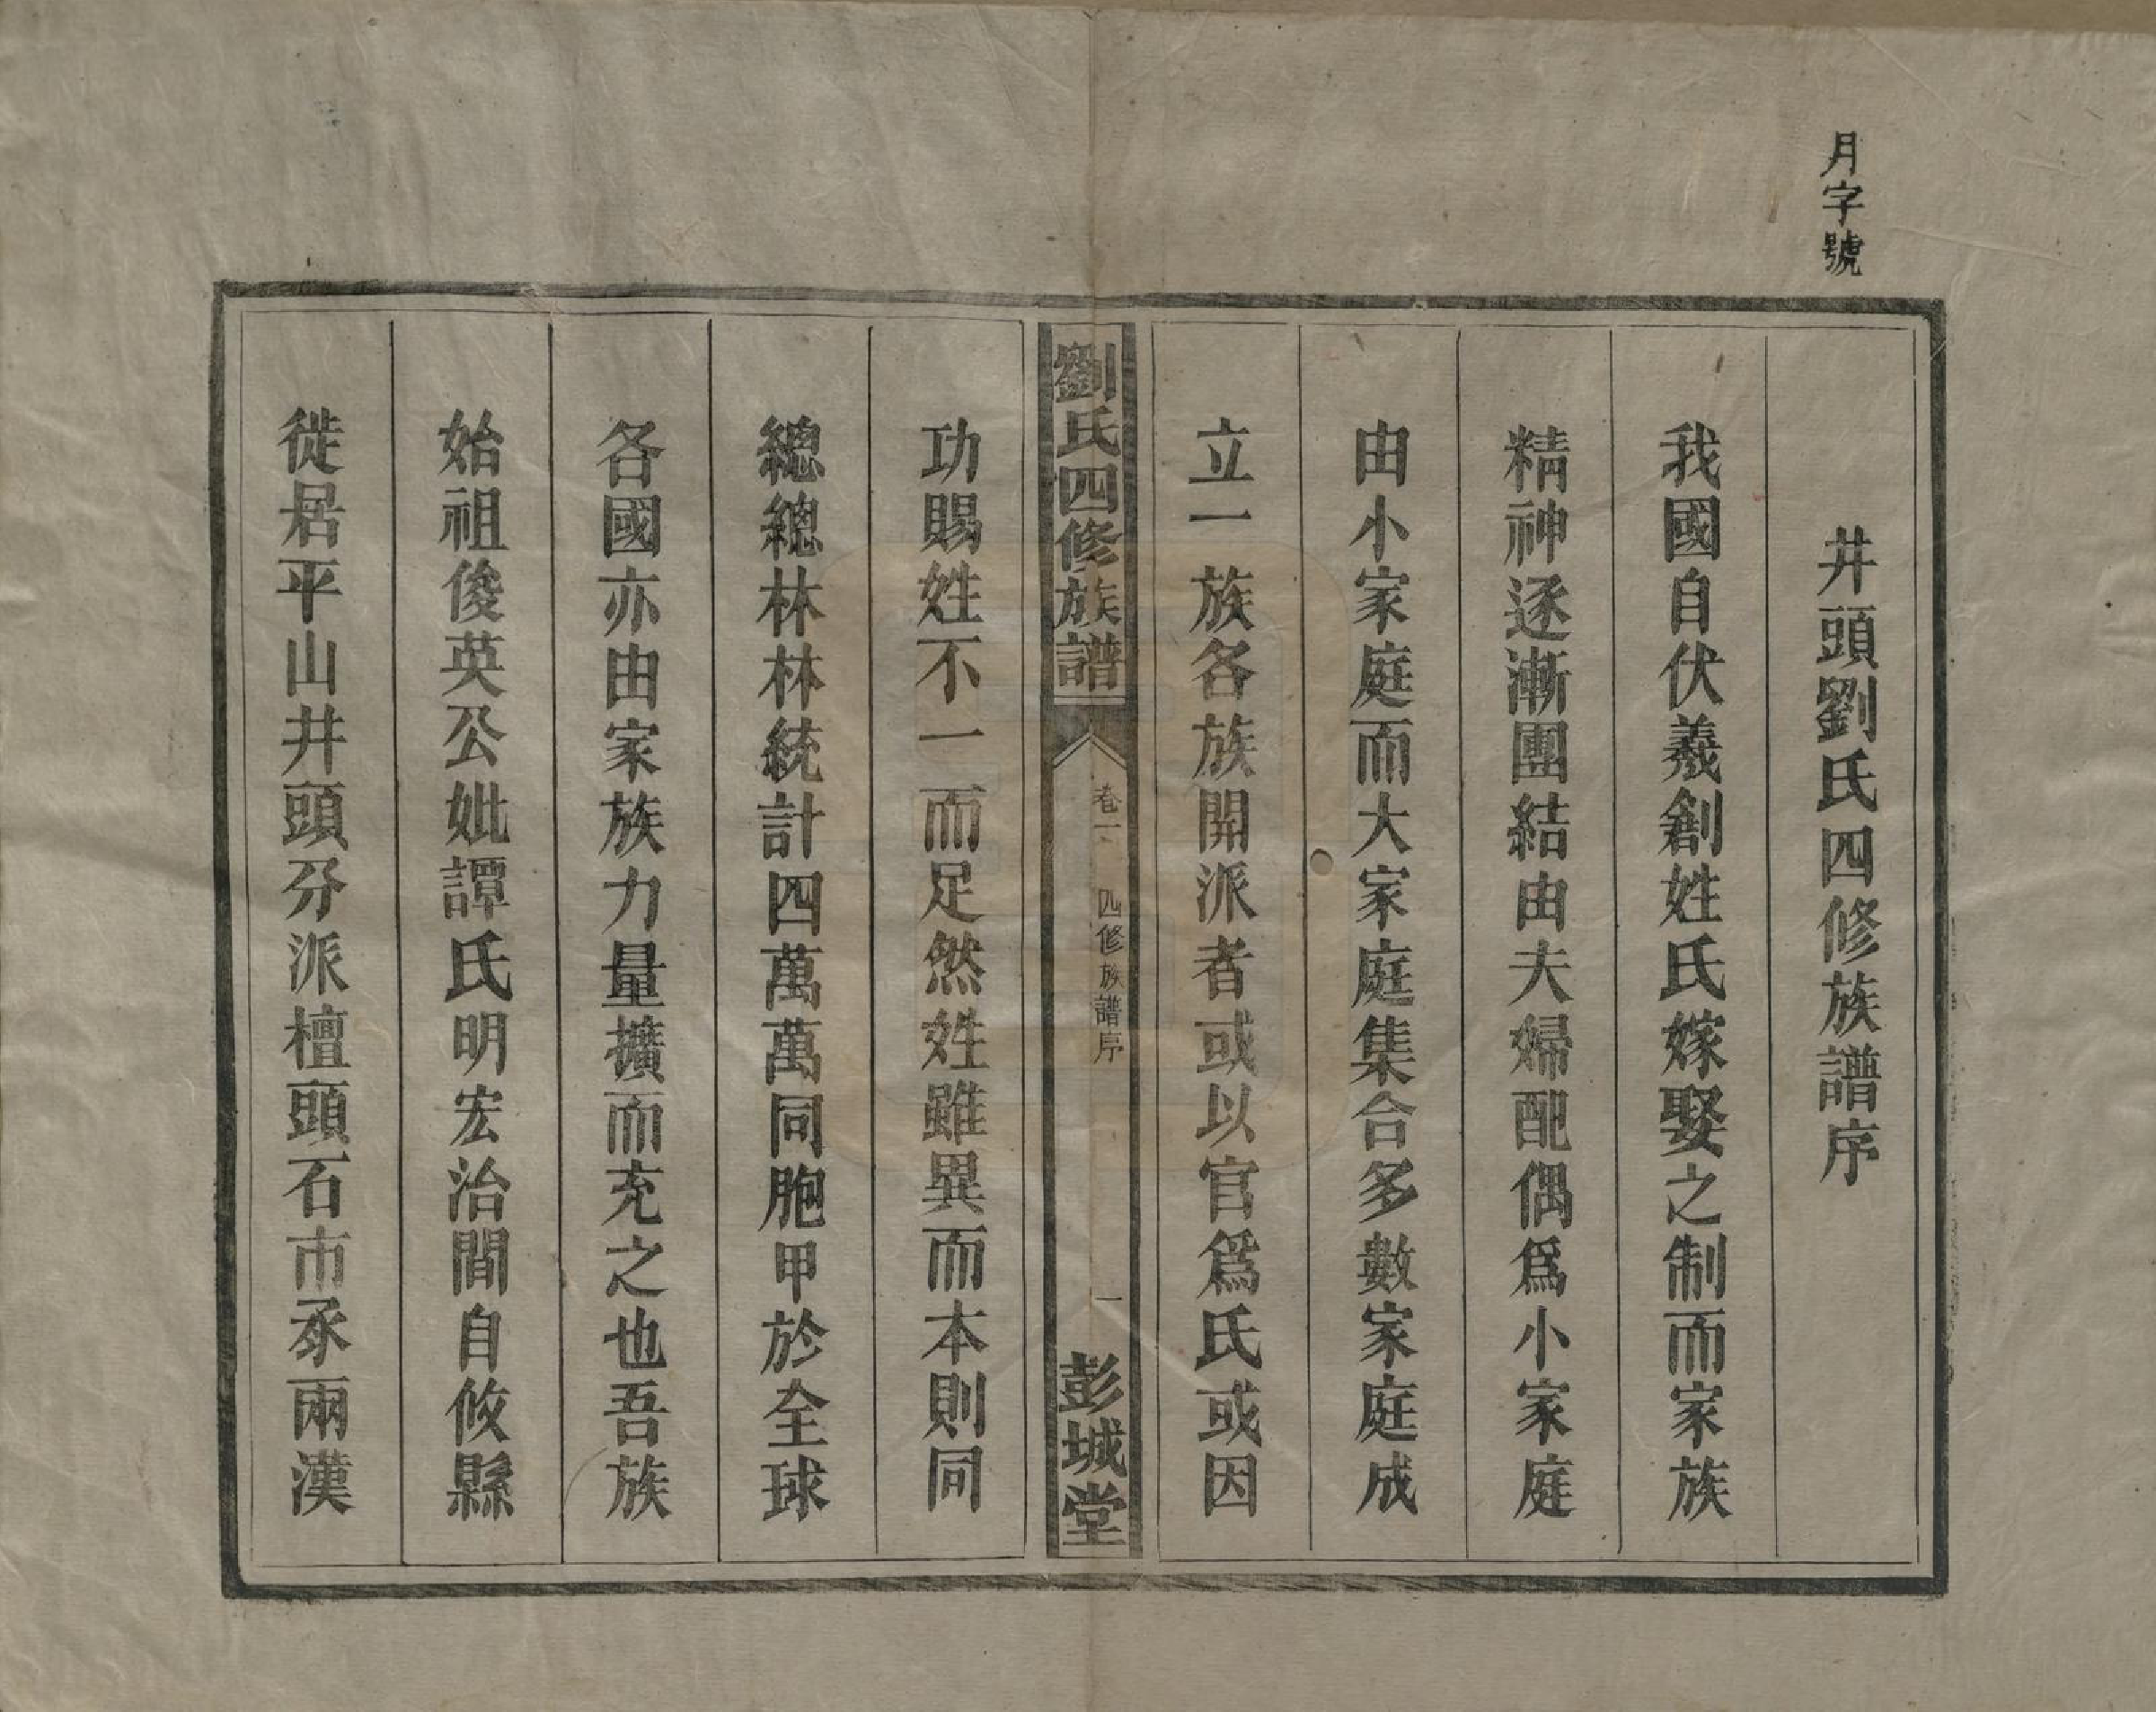 月字號
井頭劉氏四修族譜序
我國自伏羲創姓氏嫁娶之制而家族
精神逐漸團結由夫婦配偶爲小家庭
由小家庭而大家庭集合多數家庭成
立一族各族開派者或以官爲氏或因
劉氏四修族譜
卷一
四修族譜序
一
彭城堂
功賜姓不一而足然姓雖異而本則同
總總林林統計四萬萬同胞甲於全球
各國亦由家族力量擴而充之也吾族
始祖俊英公妣譚氏明宏治間自攸縣
徙居平山井頭分派檀頭石市承兩漢